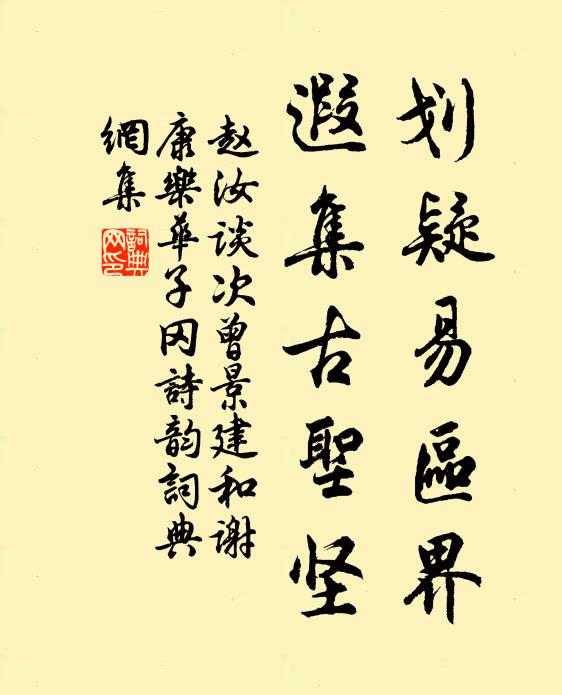 划疑易區界
遐集古聖坚
赵汝谈次曾景建和谢
康樂華子冈詩韵詞典
網集
詞典
网印